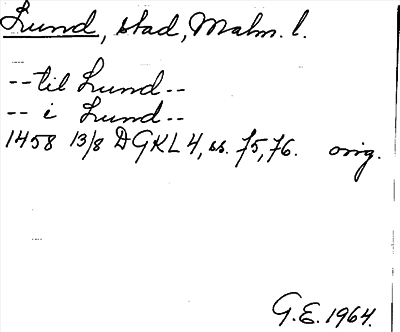 Lund, stad, Malm. l.
--til Lund--
-- i Lund--
1458 13/8 DGKL 4, ss. 75, 76. orig.
G.E. 1964.